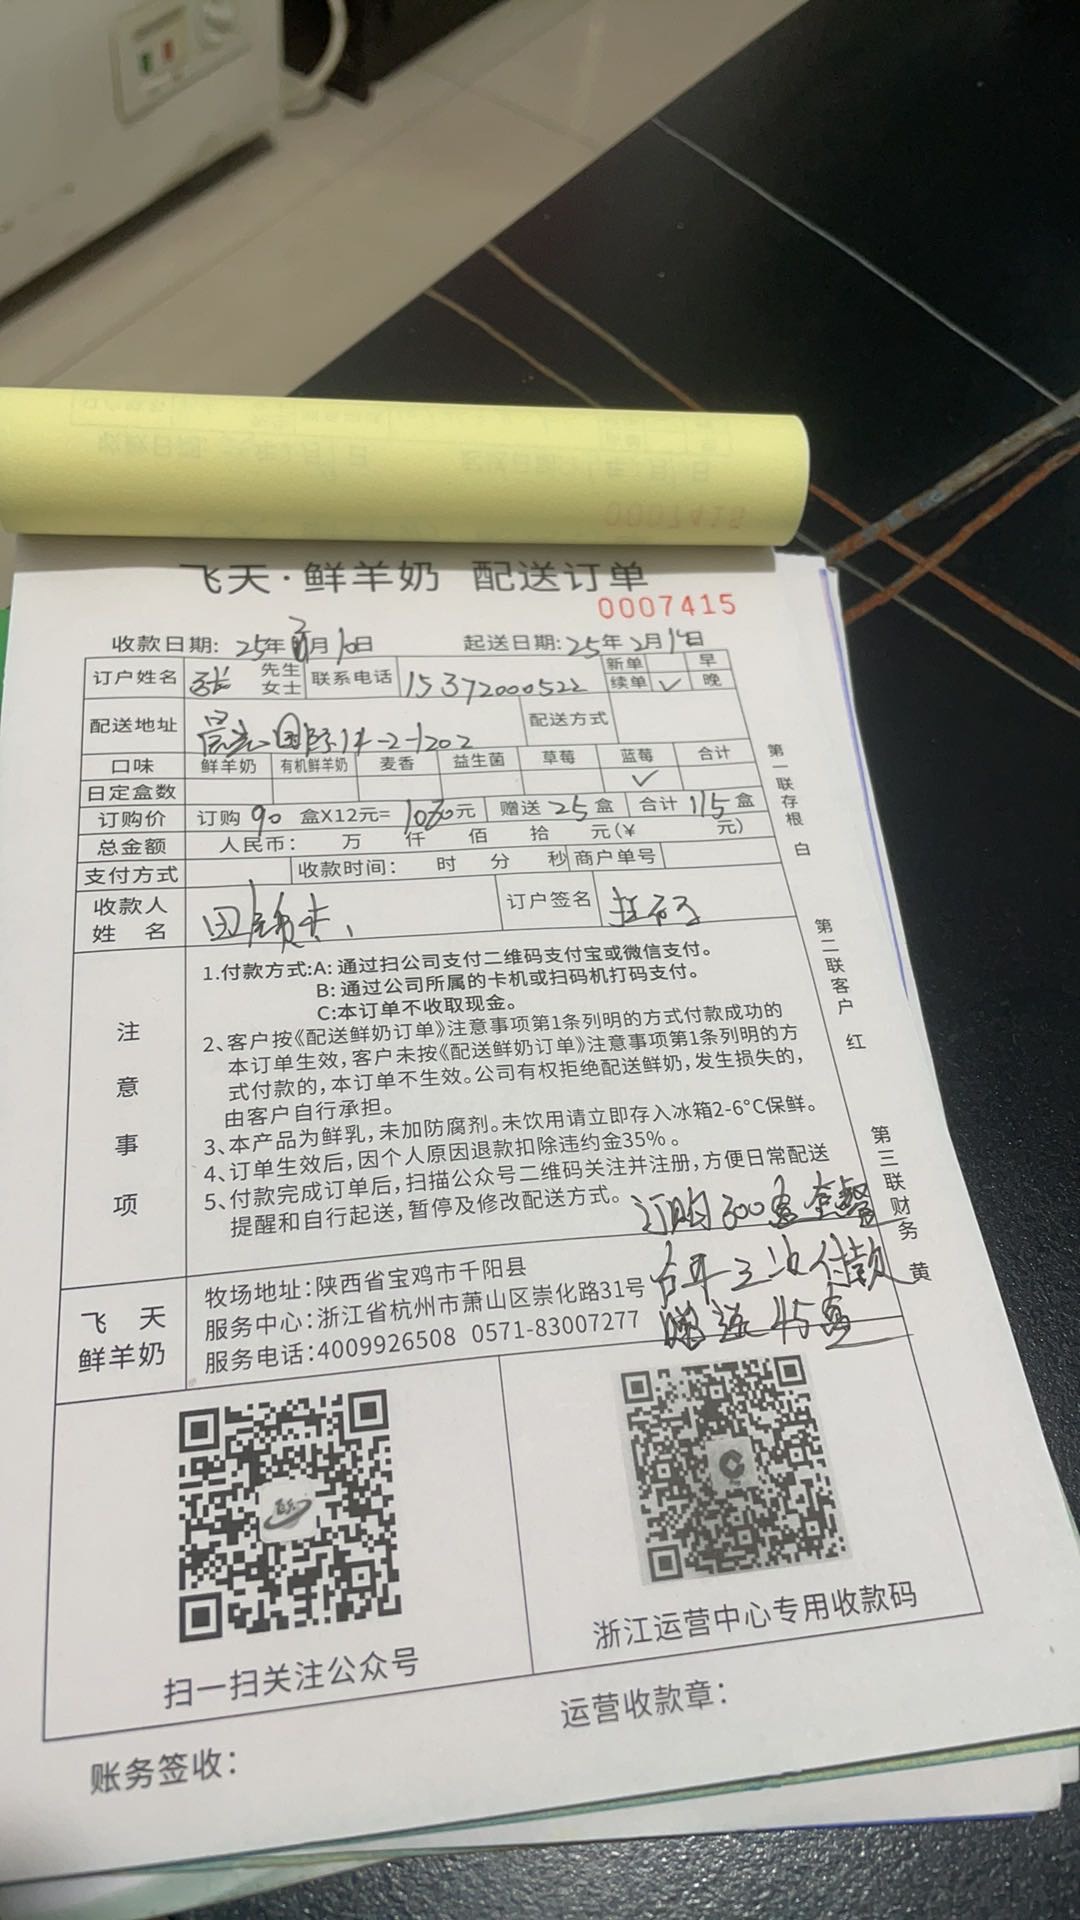 飞天·鲜羊奶 配送订单
0007415
收款日期: 25年2月10日 起送日期: 25年2月14日
订户姓名 张 先生 女士 联系电话 15372000522 新单 续单 ✓ 早 晚
配送地址 国际14-2-1202 配送方式
口味 鲜羊奶 有机鲜羊奶 麦香 益生菌 草莓 蓝莓 合计
日定盒数 ✓
订购价 订购 90 盒X12元= 1080元 赠送 25 盒 合计 115 盒
总金额 人民币: 万 仟 佰 拾 元(¥ 元)
支付方式 收款时间: 时 分 秒 商户单号
收款人姓名 田 订户签名
注意事项
1.付款方式:A: 通过扫公司支付二维码支付宝或微信支付。
B: 通过公司所属的卡机或扫码机打码支付。
C:本订单不收取现金。
2、客户按《配送鲜奶订单》注意事项第1条列明的方式付款成功的
本订单生效,客户未按《配送鲜奶订单》注意事项第1条列明的方
式付款的,本订单不生效。公司有权拒绝配送鲜奶,发生损失的,
由客户自行承担。
3、本产品为鲜乳,未加防腐剂。未饮用请立即存入冰箱2-6°C保鲜。
4、订单生效后,因个人原因退款扣除违约金35%。
5、付款完成订单后,扫描公众号二维码关注并注册,方便日常配送
提醒和自行起送,暂停及修改配送方式。
订购300盒套餐
三次付款
赠送45盒
飞天鲜羊奶
牧场地址:陕西省宝鸡市千阳县
服务中心:浙江省杭州市萧山区崇化路31号
服务电话:4009926508 0571-83007277
扫一扫关注公众号
浙江运营中心专用收款码
账务签收:
运营收款章:
第一联存根 白
第二联客户 红
第三联财务 黄